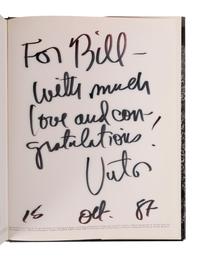 For Bill -
with much
love and con-
gratulations!
15 Oct. 87